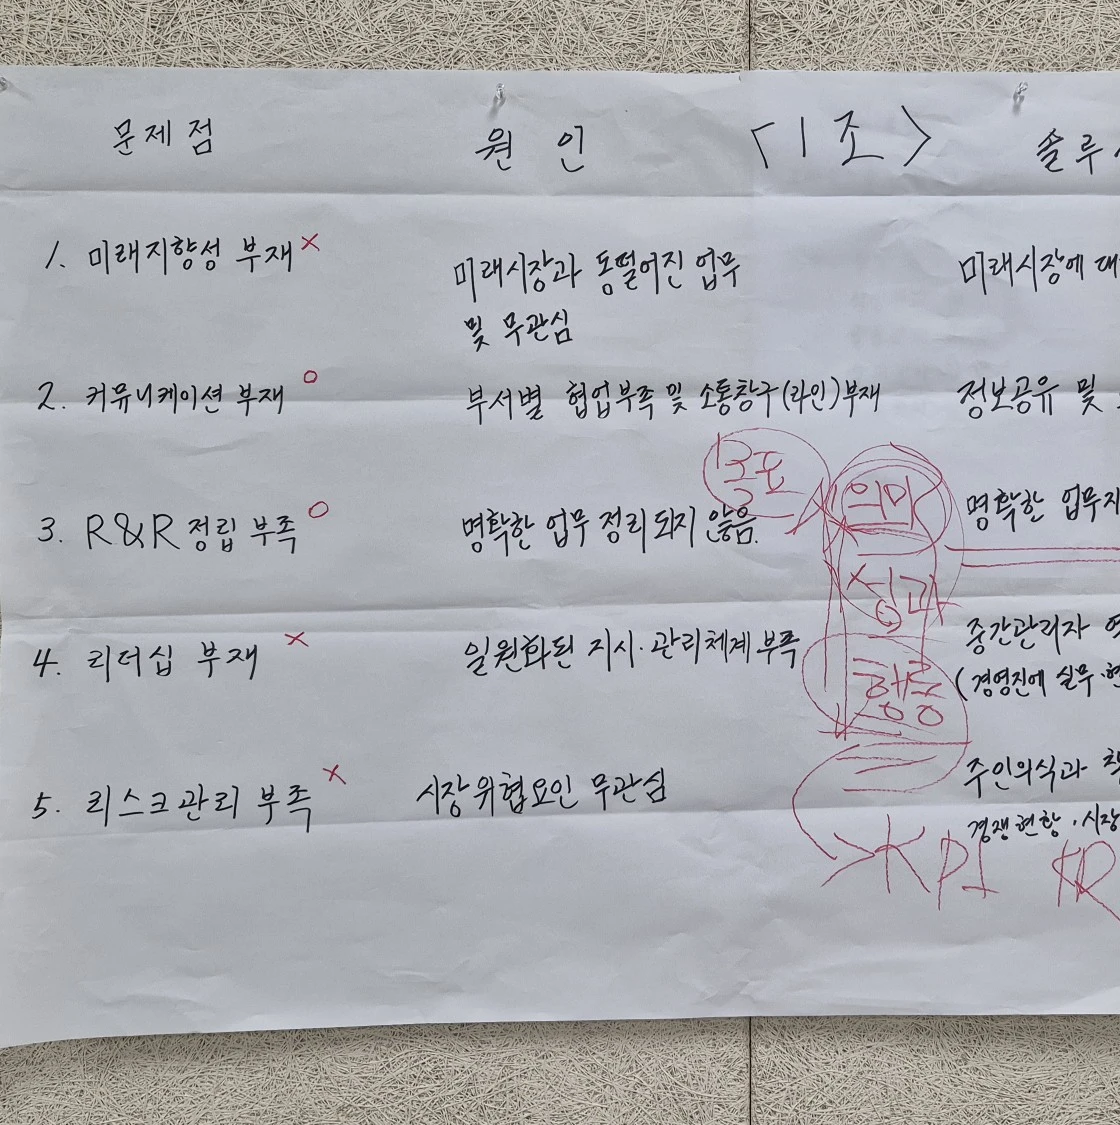 문제점 원인 <1조> 솔루
1. 미래지향성 부재 X
미래시장과 동떨어진 업무
및 무관심
미래시장에 대
2. 커뮤니케이션 부재 O
부서별 협업부족 및 소통창구(라인)부재
정보공유 및
목표
의미
3. R&R 정립 부족 O
명확한 업무 정리 되지 않음.
명확한 업무지
성과
4. 리더십 부재 X
일원화된 지시·관리체계 부족
중간관리자
(경영진에 실무·현
행동
5. 리스크관리 부족 X
시장위협요인 무관심
주인의식과
경쟁현황·시장
KPI KR